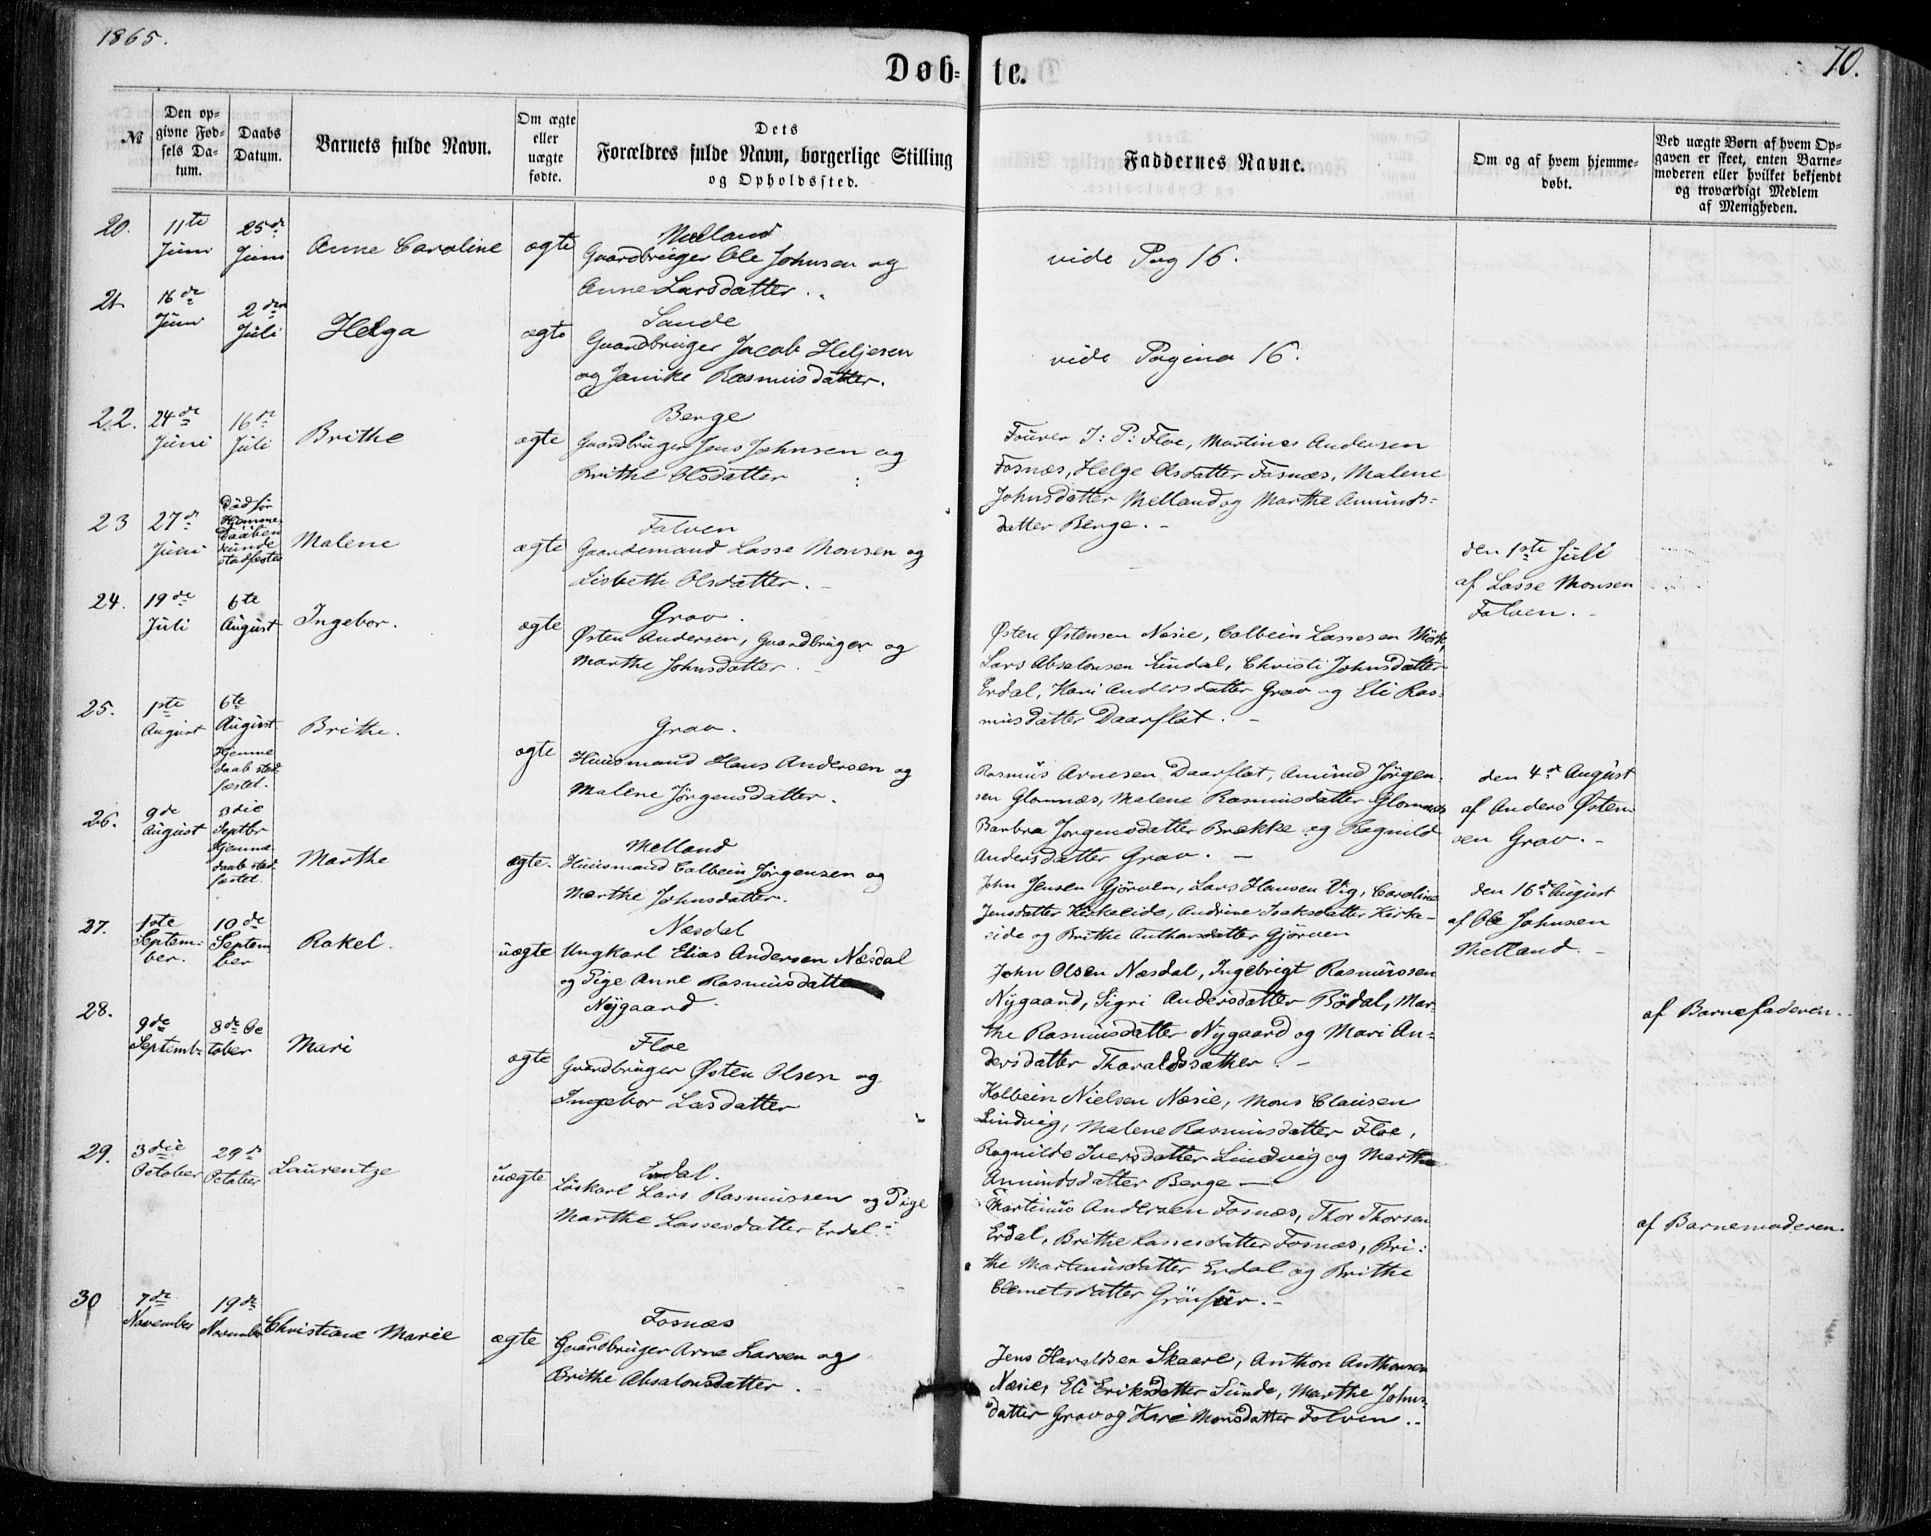 1865.
70.
Døb-te.
№
Den op-
givne Fød-
sels Da-
tum.
Daabs
Datum.
Barnets fulde Navn.
Om ægte
eller
uægte
fødte.
Dets
Forældres fulde Navn, borgerlige Stilling
og Opholdssted.
Faddernes Navne.
Om og af hvem hjemme-
døbt.
Ved uægte Børn af hvem Op-
gaven er skeet, enten Barne-
moderen eller hvilket bekjendt
og troværdigt Medlem
af Menigheden.
20.
11te
Juni
25de
Juni
Anne Caroline
ægte
Melland
Gaardbruger Ole Johnsen og
Anne Larsdatter.
vide Pag 16.
21.
16de
Juni
2den
Juli
Helga
ægte
Sande
Gaardbruger Jacob Heljesen
og Janike Rasmusdatter.
vide Pagina 16.
22.
24de
Juni
16de
Juli
Brithe
ægte
Berge
Gaardbruger Jens Johnsen og
Brithe Olsdatter
Fourer J: P: Floe, Martines Andersen
Fosnæs, Helge Olsdatter Fosnæs, Malene
Johnsdatter Melland og Marthe Amunds-
datter Berge. -
23
27de
Juni
Død før
Hjemme
Daaben
kunde
stadfæstes
Malene
ægte
Folven
Gaardmand Lasse Monsen og
Lisbeth Olsdatter. -
den 1ste Juli
af Lasse Monsen
Folven. -
24.
19de
Juli
6te
August
Ingebor.
ægte
Grov.
Østen Andersen, Gaardbruger og
Marthe Johnsdatter.
Østen Østensen Næsie, Colbein Lassesen Mørk,
Lars Absalonsen Lindal, Christi Johnsdatter
Erdal, Kari Andersdatter Grov og Eli Ras-
musdatter Daarflot. -
25.
1ste
August
6te
August
Hjemme
daab stad
fæstet.
Brithe.
ægte
Grov.
Huusmand Hans Andersen og
Malene Jørgensdatter.
Rasmus Arnesen Daarflot, Amund Jørgen-
sen Glomnæs, Malene Rasmusdatter Glomnæs
Barbra Jørgensdatter Brække og Ragnild
Andersdatter Grov. -
den 4de August
af Anders Østen-
sen Grov. -
26.
9de
August
3die
Septbr
Hjemme
daab stad
fæstet.
Marthe
ægte.
Melland
Huusmand Colbein Jørgensen og
Marthe Johnsdatter.
John Jensen Gjørven, Lars Hansen Vig, Caroline
Jensdatter Kirkeeide, Andrine Isaksdatter Kirke-
eide og Brithe Anthonsdatter Gjørven
den 16de August
af Ole Johnsen
Melland. -
27.
1ste
Septem-
ber.
10de
Septem
ber
Rakel.
uægte
Næsdal
Ungkarl Elias Andersen Næsdal
og Pige Anne Rasmusdatter
Nygaard
John Olsen Næsdal, Ingebrigt Rasmussen
Nygaard, Sigri Andersdatter Bødal, Mar-
the Rasmusdatter Nygaard og Mari An-
dersdatter Thoraldssæther. -
af Barnefaderen.
28.
9de
Septemb.
8de Oc
tober
Mari
ægte
Floe
Gaardbruger Østen Olsen og
Ingebor Lasdatter
Kolbein Nielsen Næsie, Mons Clausen
Lindvig, Malene Rasmusdatter Floe,
Ragnilde Iversdatter Lindvig og Marthe
Amundsdatter Berge -
29.
3die
October
29de
October
Laurentze
uægte
Erdal.
Løskarl Lars Rasmussen og Pige
Marthe Lassesdatter Erdal.
Martinus Andersen Fosnæs, Thor Thorsen
Erdal, Brithe Lassesdatter Fosnæs, Bri-
the Martinusdatter Erdal og Brithe
Clemetsdatter
af Barnemoderen.
30
7de
November
19de
November
Christiane Marie
ægte
Fosnæs
Gaardbruger Arne Larsen og
Brithe Absalonsdatter.
Jens Haraldsen Skaare, Anthon Anthonsen
Næsie, Eli Eriksdatter Sunde, Marthe Johns-
datter Grov og Kari Monsdatter Folven.